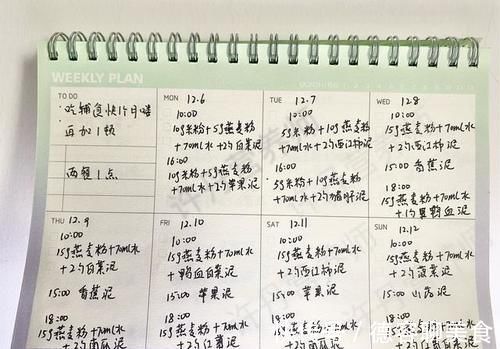 WEEKLY PLAN
TO DO
·吃辅食快1个月喽
再加1顿
两餐1点
MON 12.6
10:00
10g米粉+5g燕麦粉
+70ml水+2勺白菜泥
16:00
10g米粉+5g燕麦粉
+70ml水+2勺苹果泥
TUE 12.7
10:00
5g米粉+10g燕麦粉
+70ml水+2勺西红柿泥
16:00
5g米粉+10g燕麦粉
+70ml水+2勺猪肝泥
WED 12.8
10:00
15g燕麦粉+70ml水
+2勺西红柿泥
15:00 香蕉泥
18:00
15g燕麦粉+70ml水
+1勺鸭血泥
THU 12.9
10:00
15g燕麦粉+70ml水
+2勺白菜泥
15:00 香蕉泥
18:00
15g燕麦粉+70ml水
+2勺南瓜泥
FRI 12.10
10:00
15g燕麦粉+70ml水
+鸭血白菜泥
15:00 苹果泥
18:00
15g燕麦粉+70ml水
SAT 12.11
10:00
15g燕麦粉+70ml水
+2勺西红柿泥
15:00 苹果泥
18:00
15g燕麦粉+70ml水
SUN 12.12
10:00
15g燕麦粉+70ml水
+2勺菠菜泥
15:00 山药泥
18:00